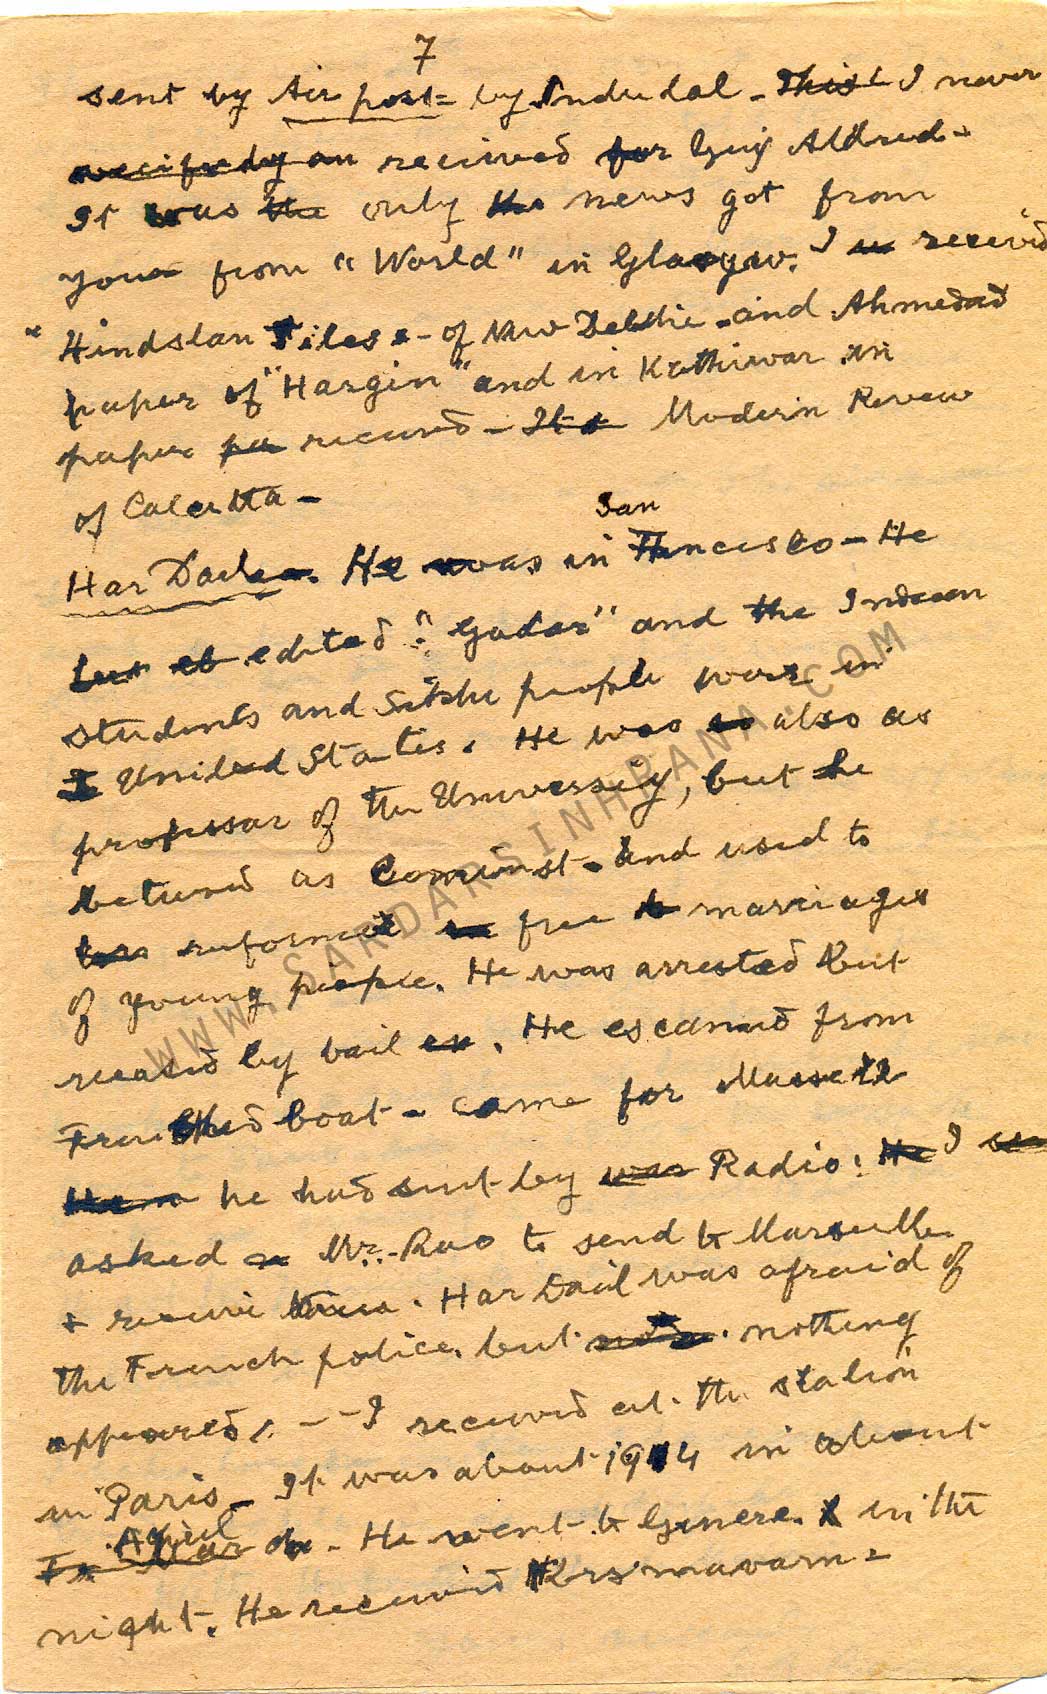 7
sent by Air post = by Indulal - This I never
received for Guy Aldred -
It was the only the news got from
your from "World" in Glasgow. I received
"Hindstan Tiles - of New Delhie - and Ahmedad
paper of "Hargin" and in Kathiwar in
paper received - It Modern Revew
of Calcutta -
San
Har Dail. He was in Francisco - He
edited "Gadar" and the Indian
students and Sikhe people was in
United States. He was also as
professar of the University, but he
beturned as Cominst - and used to
reformed free marriages
of young people. He was arrested but
reeased by bail. He escaned from
boat - came for
he had sent by was Radio: He I
asked Mr. Rao to send to Marseille
+ receive. Har Dail was afraid of
the French police, but nothing
appeared. -- I received at the station
in Paris - It was about 1914 in about
April
War - He went to Genere. in the
night. He received Krsmavarm =
WWW.SARDARSINHRANA.COM